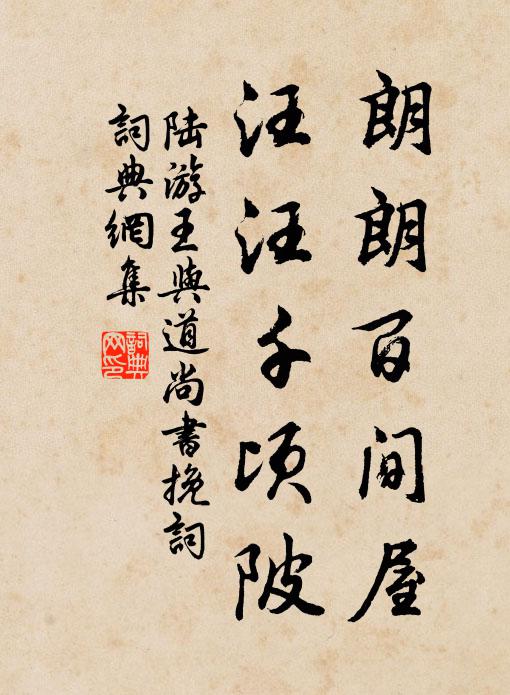 朗朗百间屋
汪汪千顷陂
陆游王与道尚书挽词
词典网集
词典网印